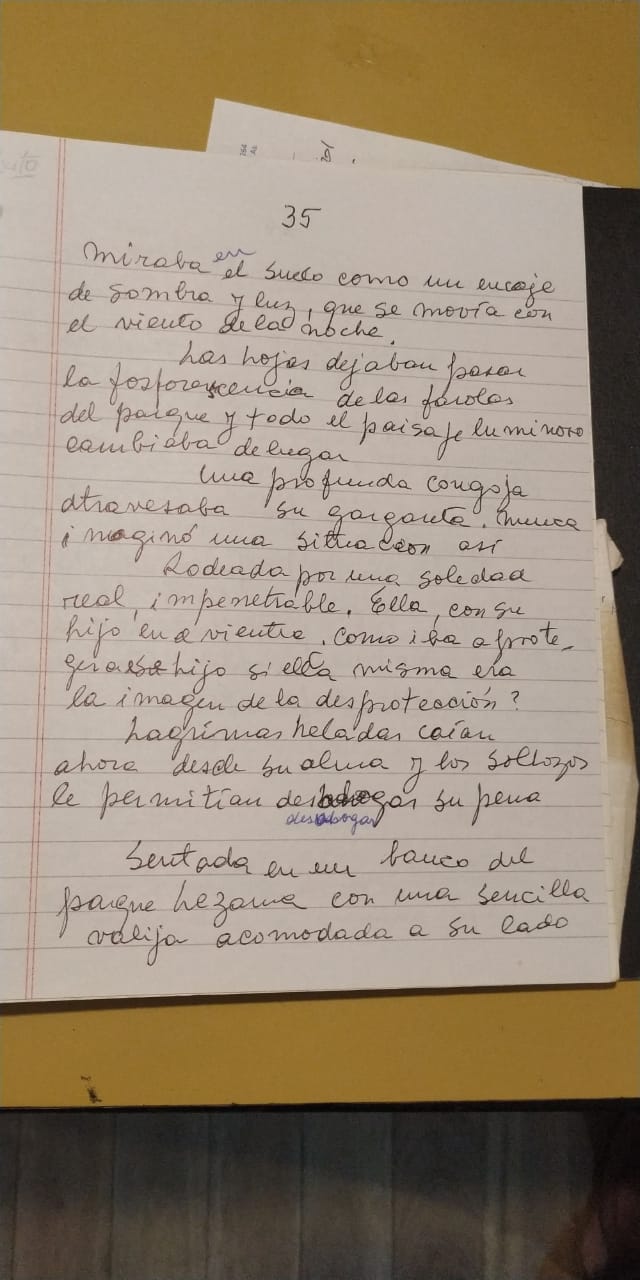 35
Miraba en el suelo como un encaje
de sombra y luz, que se movía con
el viento de la noche.
Las hojas dejaban pasar
la fosforescencia de las farolas
del parque y todo el paisaje luminoso
cambiaba de lugar
Una profunda congoja
atravesaba su garganta. Nunca
imaginó una situación así
Rodeada por una soledad
real, impenetrable. Ella, con su
hijo en el vientre. como iba a prote_
ger a ese hijo si ella misma era
la imagen de la desprotección?
Lagrimas heladas caían
ahora desde su alma y los sollozos
le permitían desahogar su pena
desahogar
Sentada en un banco del
parque Lezama con una sencilla
valija acomodada a su lado